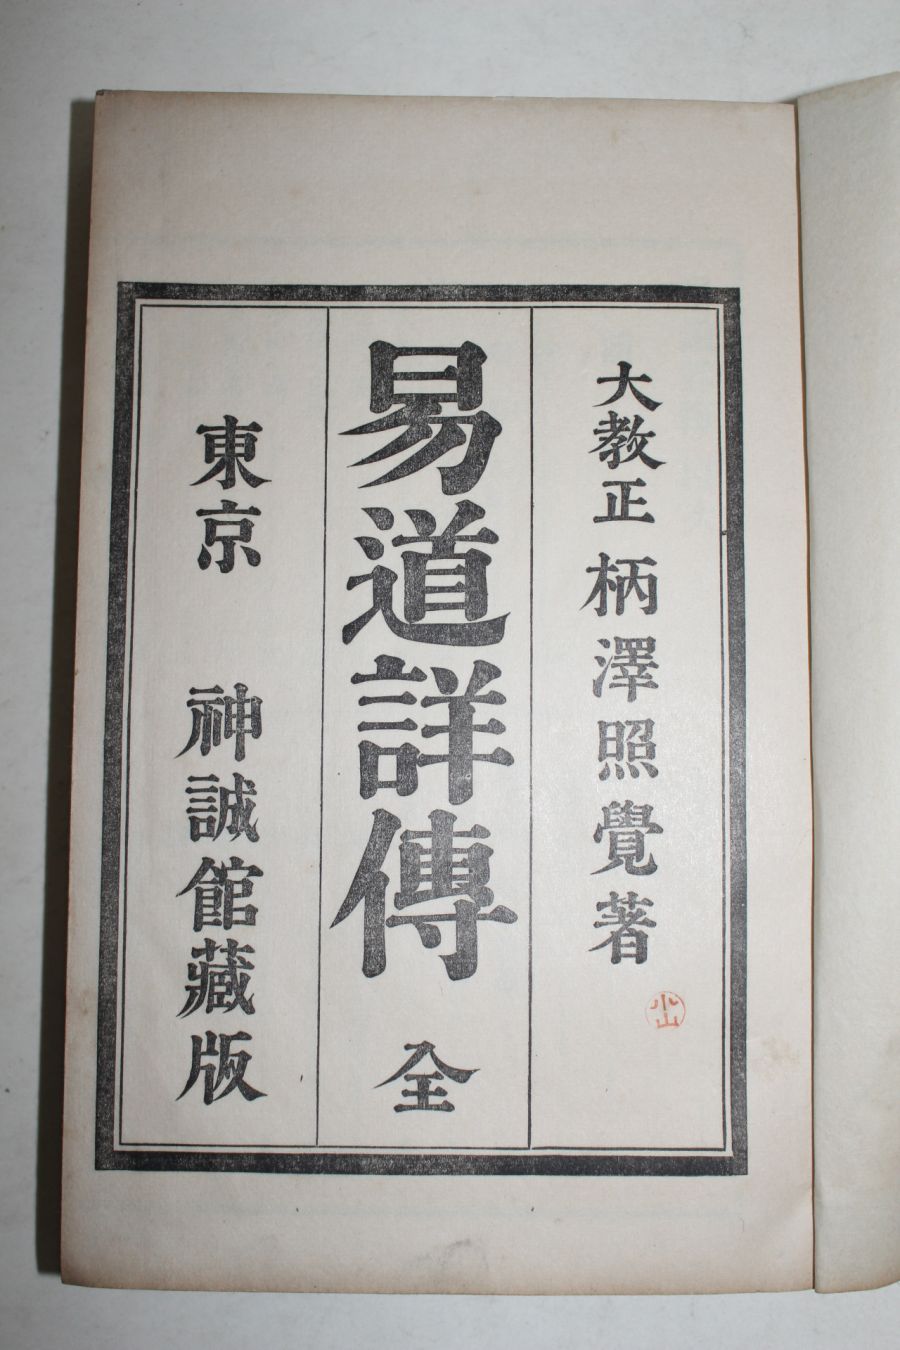 大教正 柄澤照覺著
小山
易道詳傳 全
東京 神誠館藏版